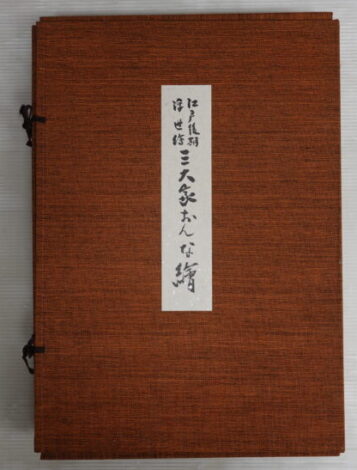 江戸後期
浮世絵
三大家おんな繪